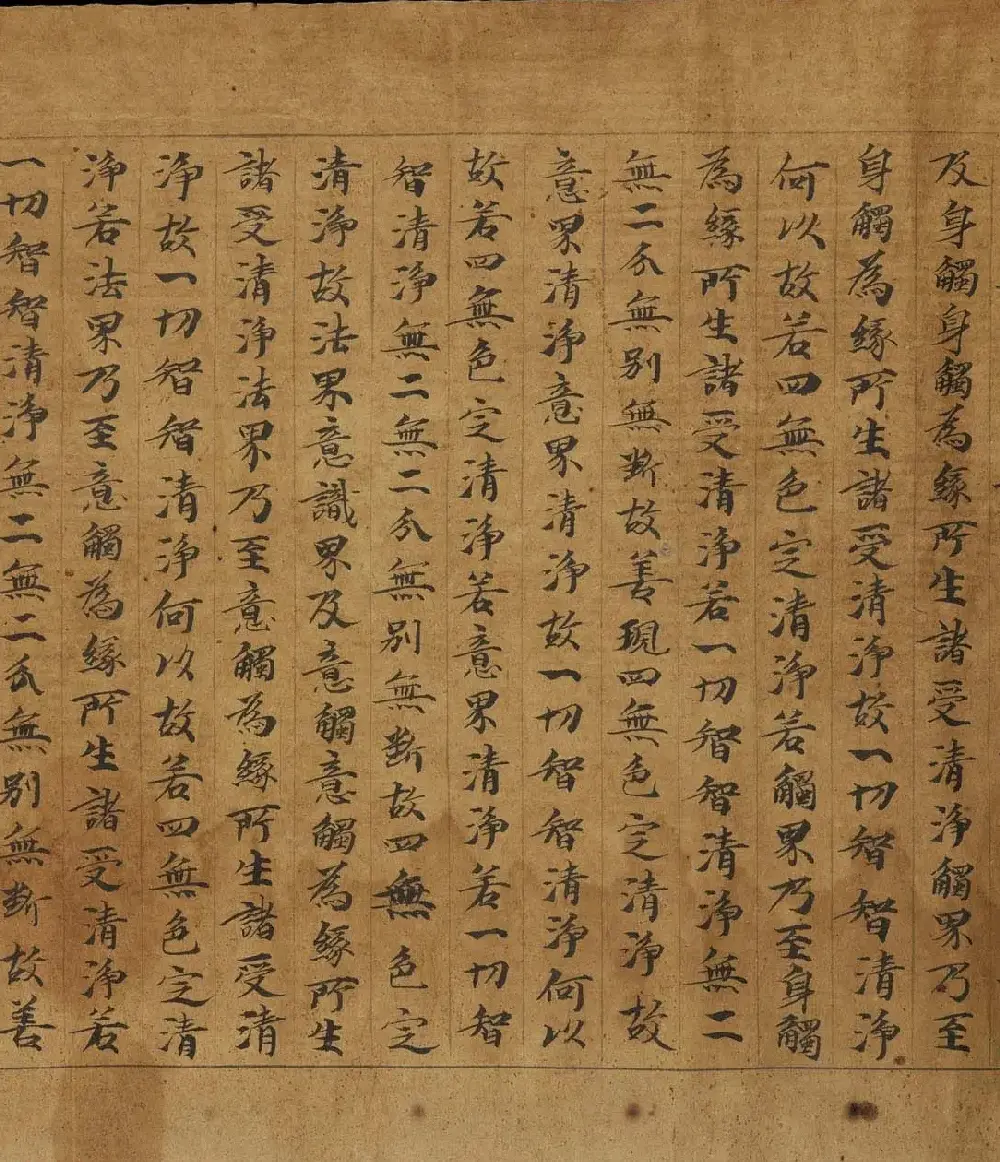 及身觸身觸為緣所生諸受清淨觸界乃至
身觸為緣所生諸受清淨故一切智智清淨
何以故若四無色定清淨若觸界乃至身觸
為緣所生諸受清淨若一切智智清淨無二
無二分無別無斷故善現四無色定清淨故
意界清淨意界清淨故一切智智清淨何以
故若四無色定清淨若意界清淨若一切智
智清淨無二無二分無別無斷故四無色定
清淨故法界意識界及意觸意觸為緣所生
諸受清淨法界乃至意觸為緣所生諸受清
淨故一切智智清淨何以故若四無色定清
淨若法界乃至意觸為緣所生諸受清淨若
一切智智清淨無二無二分無別無斷故善